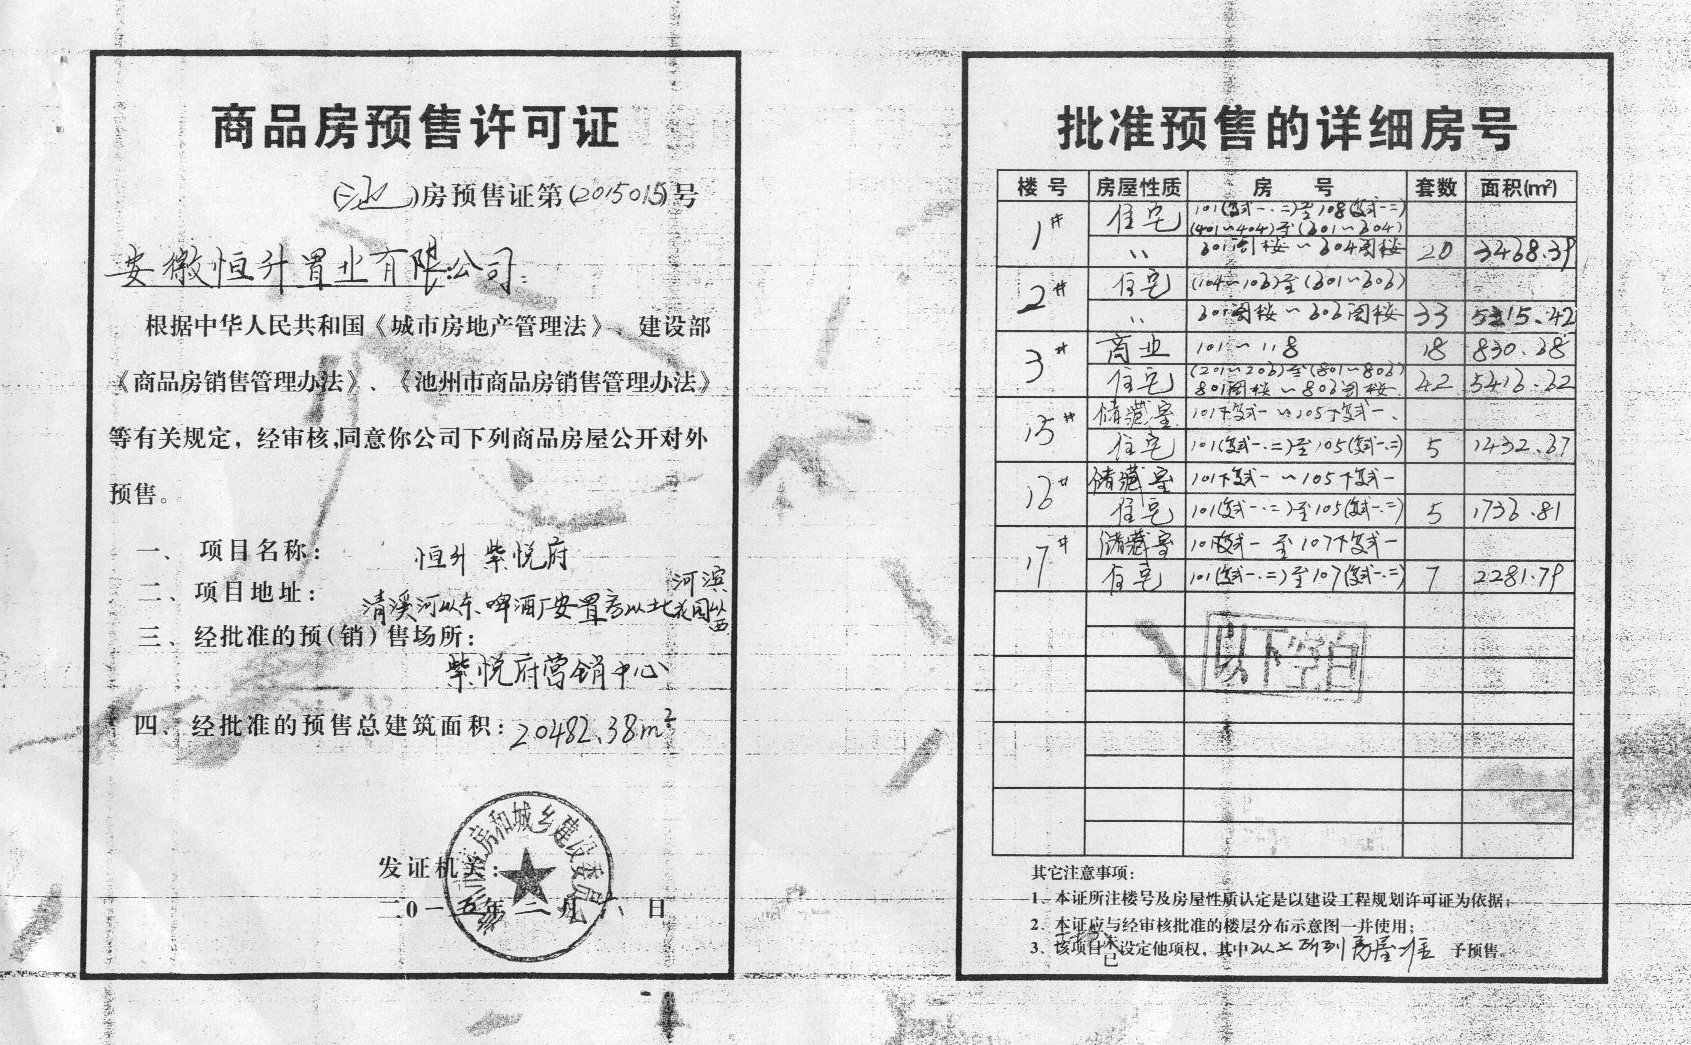 商品房预售许可证
(池)房预售证第(2015015)号
安徽恒升置业有限公司:
根据中华人民共和国《城市房地产管理法》、建设部
《商品房销售管理办法》、《池州市商品房销售管理办法》
等有关规定，经审核,同意你公司下列商品房屋公开对外
预售。
一、项目名称：恒升紫悦府
二、项目地址：清溪河以东、啤酒厂安置房以北 河滨花园以西
三、经批准的预(销)售场所：
紫悦府营销中心
四、经批准的预售总建筑面积：20482.38m²
房和城乡建设委员会
发证机关：
二0一五年二月六日
批准预售的详细房号
楼号 房屋性质 房号 套数 面积(m²)
1# 住宅 101(复式一.二)至108(复式一.二)
(401~404)至(601~604)
〃 601阁楼~604阁楼 20 3468.39
2# 住宅 (104~106)至(601~606)
〃 601阁楼~606阁楼 33 5315.42
3# 商业 101~118 18 830.38
住宅 (201~206)至(801~806)
801阁楼~806阁楼 42 5416.62
15# 储藏室 101下复式一~105下复式一
住宅 101(复式一.二)至105(复式一.二) 5 1432.37
16# 储藏室 101下复式一~105下复式一
住宅 101(复式一.二)至105(复式一.二) 5 1736.81
17# 储藏室 101下复式一至107下复式一
住宅 101(复式一.二)至107(复式一.二) 7 2281.79
以下空白
其它注意事项：
1、本证所注楼号及房屋性质认定是以建设工程规划许可证为依据；
2、本证应与经审核批准的楼层分布示意图一并使用；
3、该项目未已设定他项权，其中以上所列房屋准予预售。